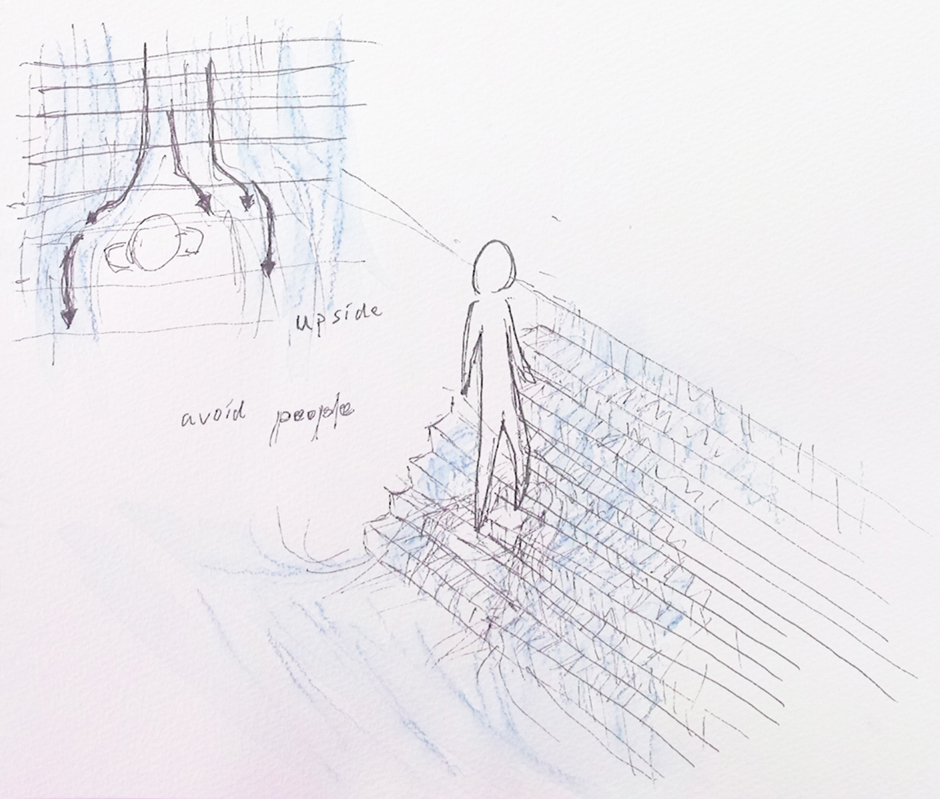 upside
avoid people